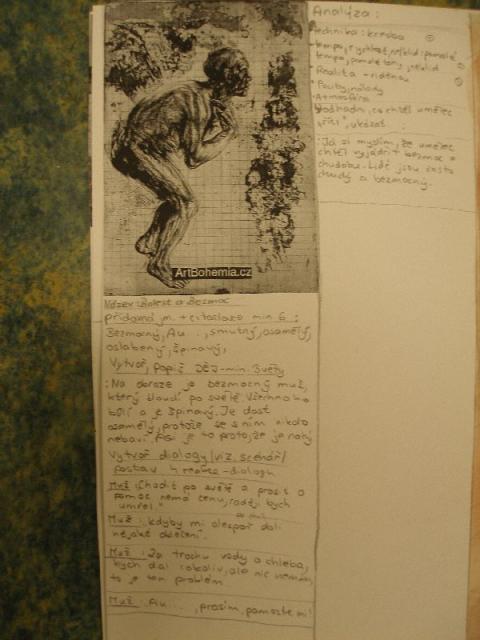 ArtBohemia.cz
Název: Bolest a Bezmoc
přídavná jm. + citoslovce min. 6 :
Bezmocný, Au..., smutný, osamělý,
oslabený, špinavý,
Vytvoř, popiš DĚJ - min. 3 věty
: Na obraze je bezmocný muž,
který bloudí po světě. Všechno ho
bolí a je špinavý. Je dost
osamělý, protože se s ním nikdo
nebaví. Asi je to proto, že je nahý
Vytvoř dialogy/viz. scénář/
postav 4 repliky - dialogy
Muž: Chodit po světě a prosit o
pomoc nemá cenu, raději bych
umřel"
Muž: kdyby mi alespoň dali
nějaké oblečení.
Muž: Za trochu vody a chleba,
bych dal cokoliv, ale nic nemám,
to je ten problém.
Muž: Au..., prosím, pomozte mi!
Analýza:
technika: kresba
tempo, rychlost, neklid: pomalé
tempo, pomalé tóny, neklid
Realita
Pocity, nálady
Atmosféra
Podhadni, co chtěl umělec
"říci", ukázat
: Já si myslím, že umělec
chtěl vyjádřit bezmoc a
chudobu. Lidé jsou často
chudý a bezmocný.